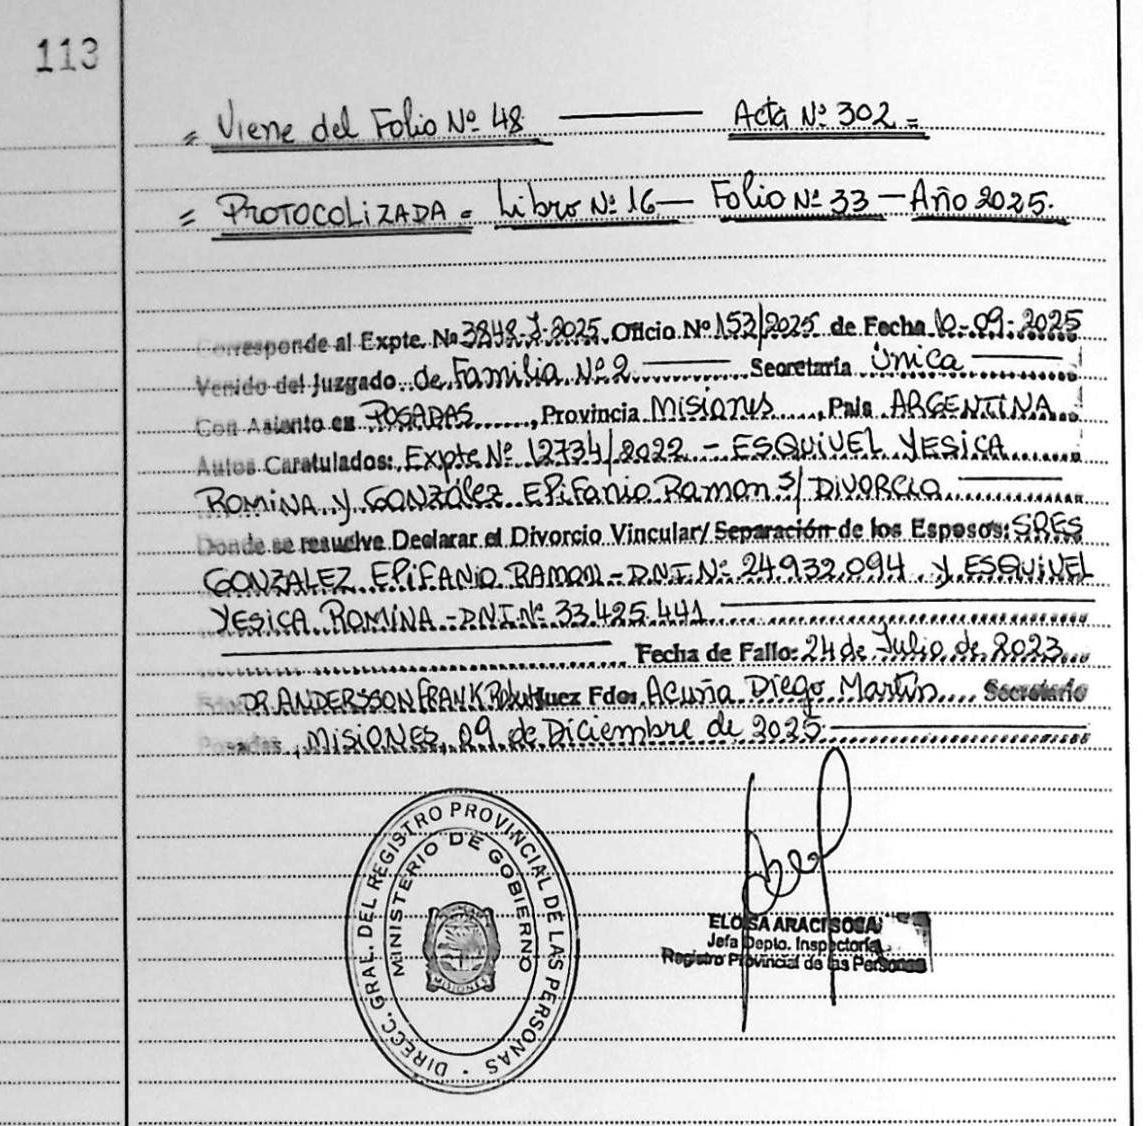 113
= Viene del Folio Nº 48 ——— Acta Nº 302 =
= PROTOCOLIZADA = Libro Nº 16 — Folio Nº 33 — Año 2025.
Corresponde al Expte. Nº 3848-J-2025 Oficio Nº 152/2025 de Fecha 10-09-2025
Venido del Juzgado de Familia Nº 2 ——— Secretaría Única ———
Con Asiento en POSADAS, Provincia Misiones, País ARGENTINA
Autos Caratulados: Expte Nº 12734/2022 - ESQUIVEL YESICA
ROMINA y GONZález EPiFanio Ramon s/ DIVORCIO ———
Donde se resuelve Declarar el Divorcio Vincular/ Separación de los Esposos: SRES
GONZALEZ EPIFANIO RAMON - D.N.I. Nº 24.932.094 y ESQUIVEL
YESICA ROMINA - DNI Nº 33.425.441 ———
——— Fecha de Fallo: 24 de Julio de 2023
DR ANDERSSON FRANK Juez Fdo: Acuña Diego Martin Secretario
Posadas, MISIONES, 09 de Diciembre de 2025 ———
DIRECC. GRAL. DEL REGISTRO PROVINCIAL DE LAS PERSONAS
MINISTERIO DE GOBIERNO
MISIONES
ELOISA ARACI SOSA
Jefa Depto. Inspectoría
Registro Provincial de las Personas